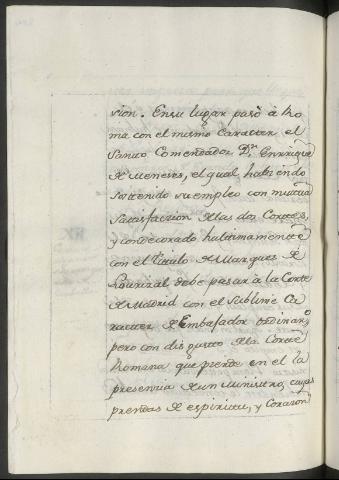 sion. En su lugar pasò à Ro
ma con el mismo Caracter el
Santo Comendador Dⁿ Enrriqᵉ
de Meneses, el qual haviendo
sostenido su empleo con mutua
satisfaccion de las dos Cortes,
y condecorado hultimamente
con el Titulo de Marques de
Lourizal debe pasar à la Corte
de Madrid con el Sublime Ca
racter de Embaxador ordinarᵒ
pero con disgusto de la Corte
Romana que pierde en el la
presencia de un ministro, cuyas
prendas de espiritu, y Corazon